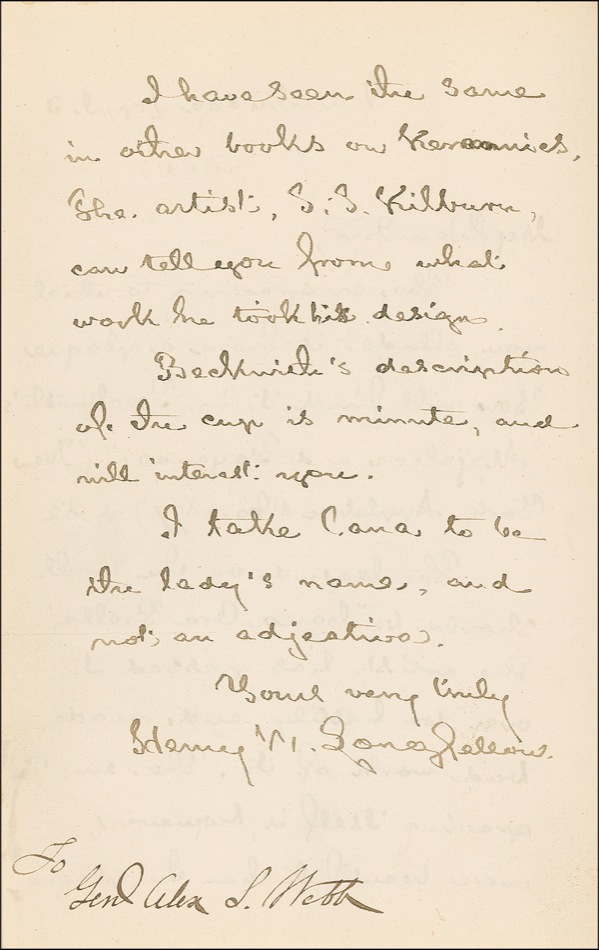 I have seen the same
in other books on Keramics.
The artist, S. S. Kilburn,
can tell you from what
work he took his design.
Beckwith's description
of the cup is minute, and
will interest you.
I take Cana to be
the lady's name, and
not an adjective.
Yours very truly
Henry W. Longfellow.
To
Genl Alex S. Webb